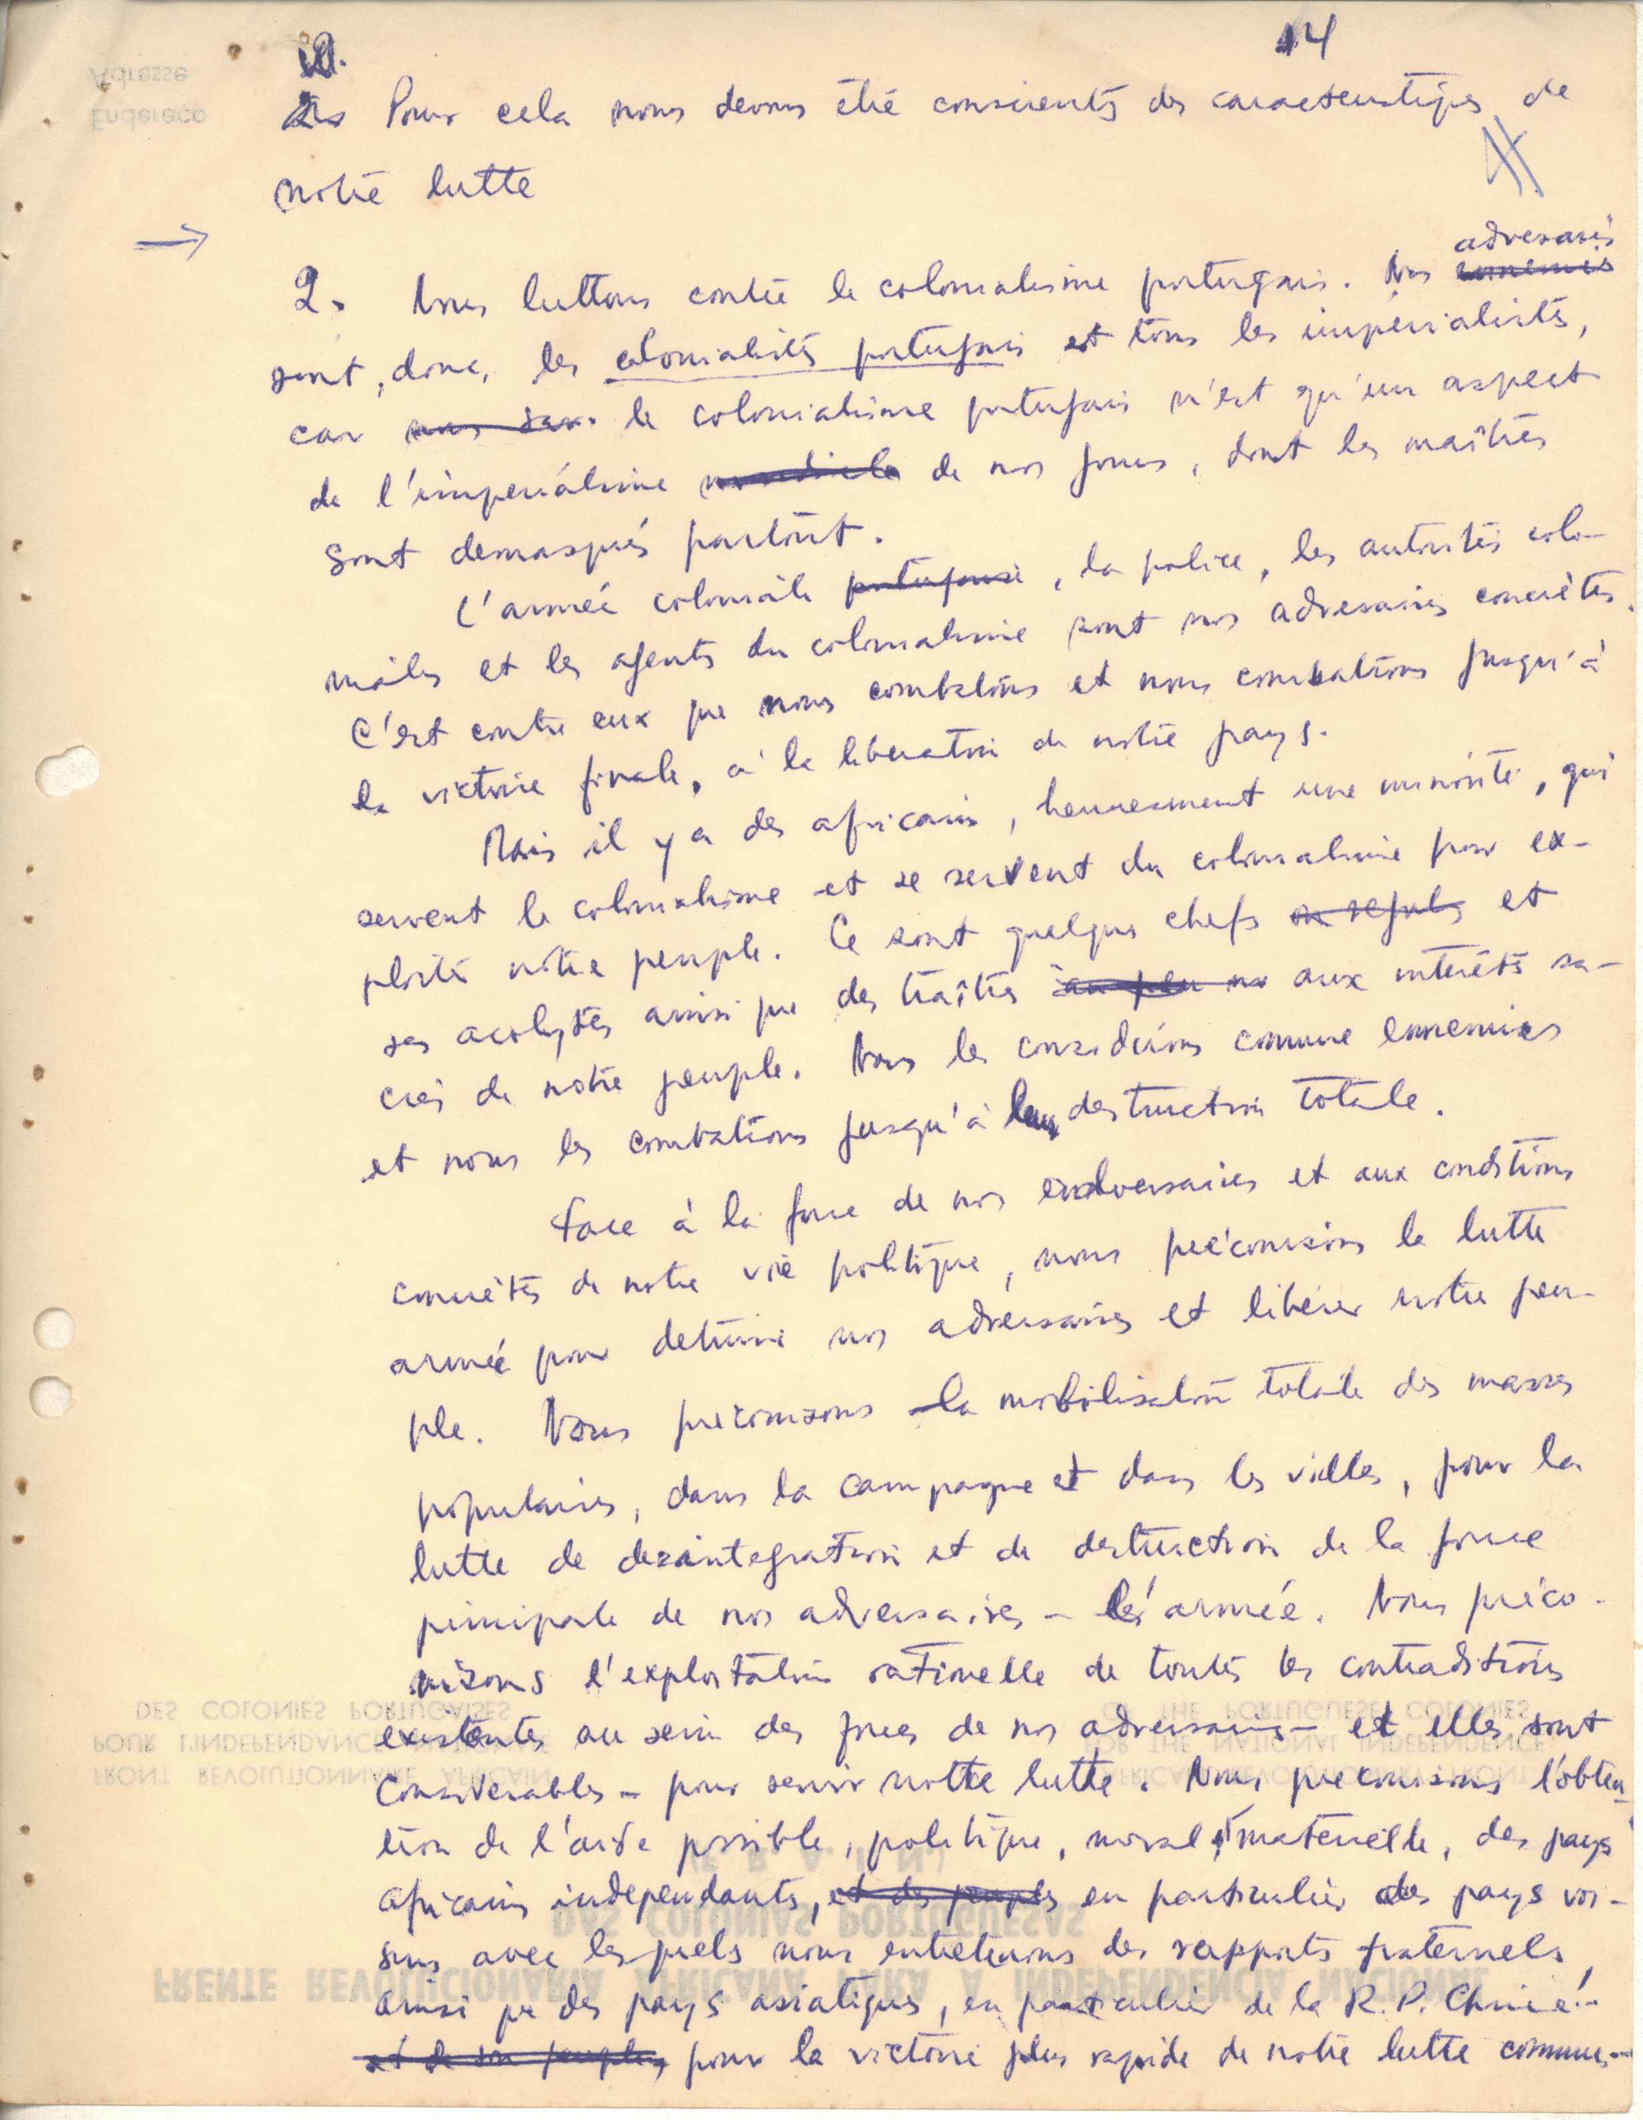 14
Pour cela nous devons être conscients des caracteristiques de
notre lutte
adversaires
2. Nous luttons contre le colonialisme portugais. Nos ennemis
sont, donc, les colonialistes portugais et tous les imperialistes,
car le colonialisme portugais n'est qu'un aspect
de l'imperialisme de nos jours, dont les maîtres
sont demasqués partout.
L'armée coloniale portugaise, la police, les autorités colo-
niales et les agents du colonialisme sont nos adversaires concrètes.
C'est contre eux que nous combatons et nous combatrons jusqu'à
la victoire finale, à la liberation de notre pays.
Mais il y a des africains, heureusement une minorité, qui
servent le colonialisme et se servent du colonialisme pour ex-
ploiter notre peuple. Ce sont quelques chefs ou regulos et
ses acolytes ainsi que des traîtres aux interêts sa-
crés de notre peuple. Nous les considérons comme ennemies
et nous les combatrons jusqu'à leur destruction totale.
Face à la force de nos adversaires et aux conditions
concrètes de notre vie politique, nous préconisons la lutte
armée pour detruire nos adversaires et libérer notre peu-
ple. Nous preconisons la mobilisation totale des masses
populaires, dans la campagne et dans les villes, pour la
lutte de desintegration et de destruction de la force
principale de nos adversaires – l'armée. Nous préco-
nisons l'exploitation rationelle de toutes les contraditions
existentes au sein des forces de nos adversaires – et elles sont
considerables – pour servir notre lutte. Nous preconisons l'obten-
tion de l'aide possible, politique, moral et materielle, des pays
africains independants, et des peuples en particulier des pays voi-
sins avec lesquels nous entretenons des rapports fraternels,
ainsi que des pays asiatiques, en particulier de la R. P. Chine
et de son peuple, pour la victoire plus rapide de notre lutte commune
Adresse
Endereço
DES COLONIES PORTUGAISES
POUR L'INDEPENDANCE
FRONT REVOLUTIONNAIRE AFRICAIN
OF THE PORTUGUESE COLONIES
FOR THE NATIONAL INDEPENDENCE
AFRICAN REVOLUTIONARY FRONT
DAS COLONIAS PORTUGUESAS
FRENTE REVOLUCIONARIA AFRICANA PARA A INDEPENDENCIA NACIONAL